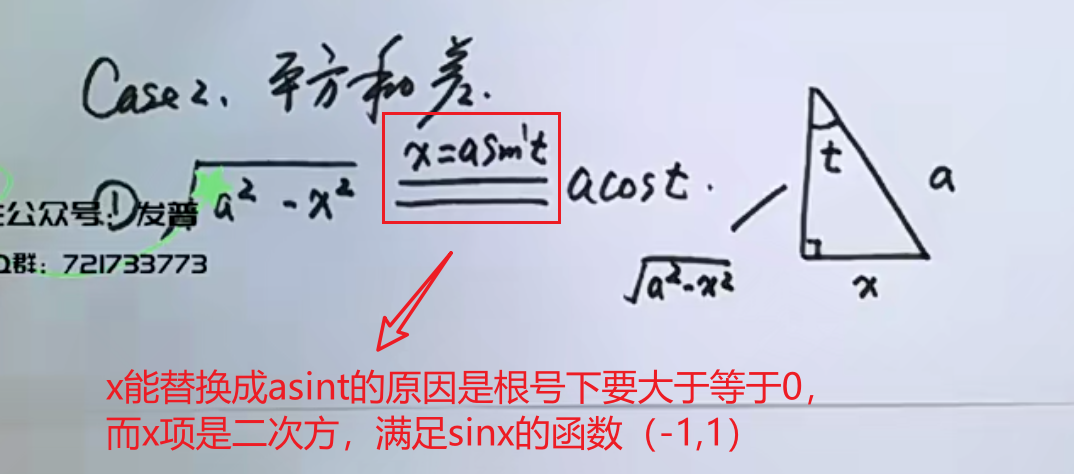 Case 2. 平方和差.
① √a² - x² x=asint acost.
主公众号: 发普
Q群: 721733773
t
a
√a²-x²
x
x能替换成asint的原因是根号下要大于等于0,
而x项是二次方，满足sinx的函数（-1,1）